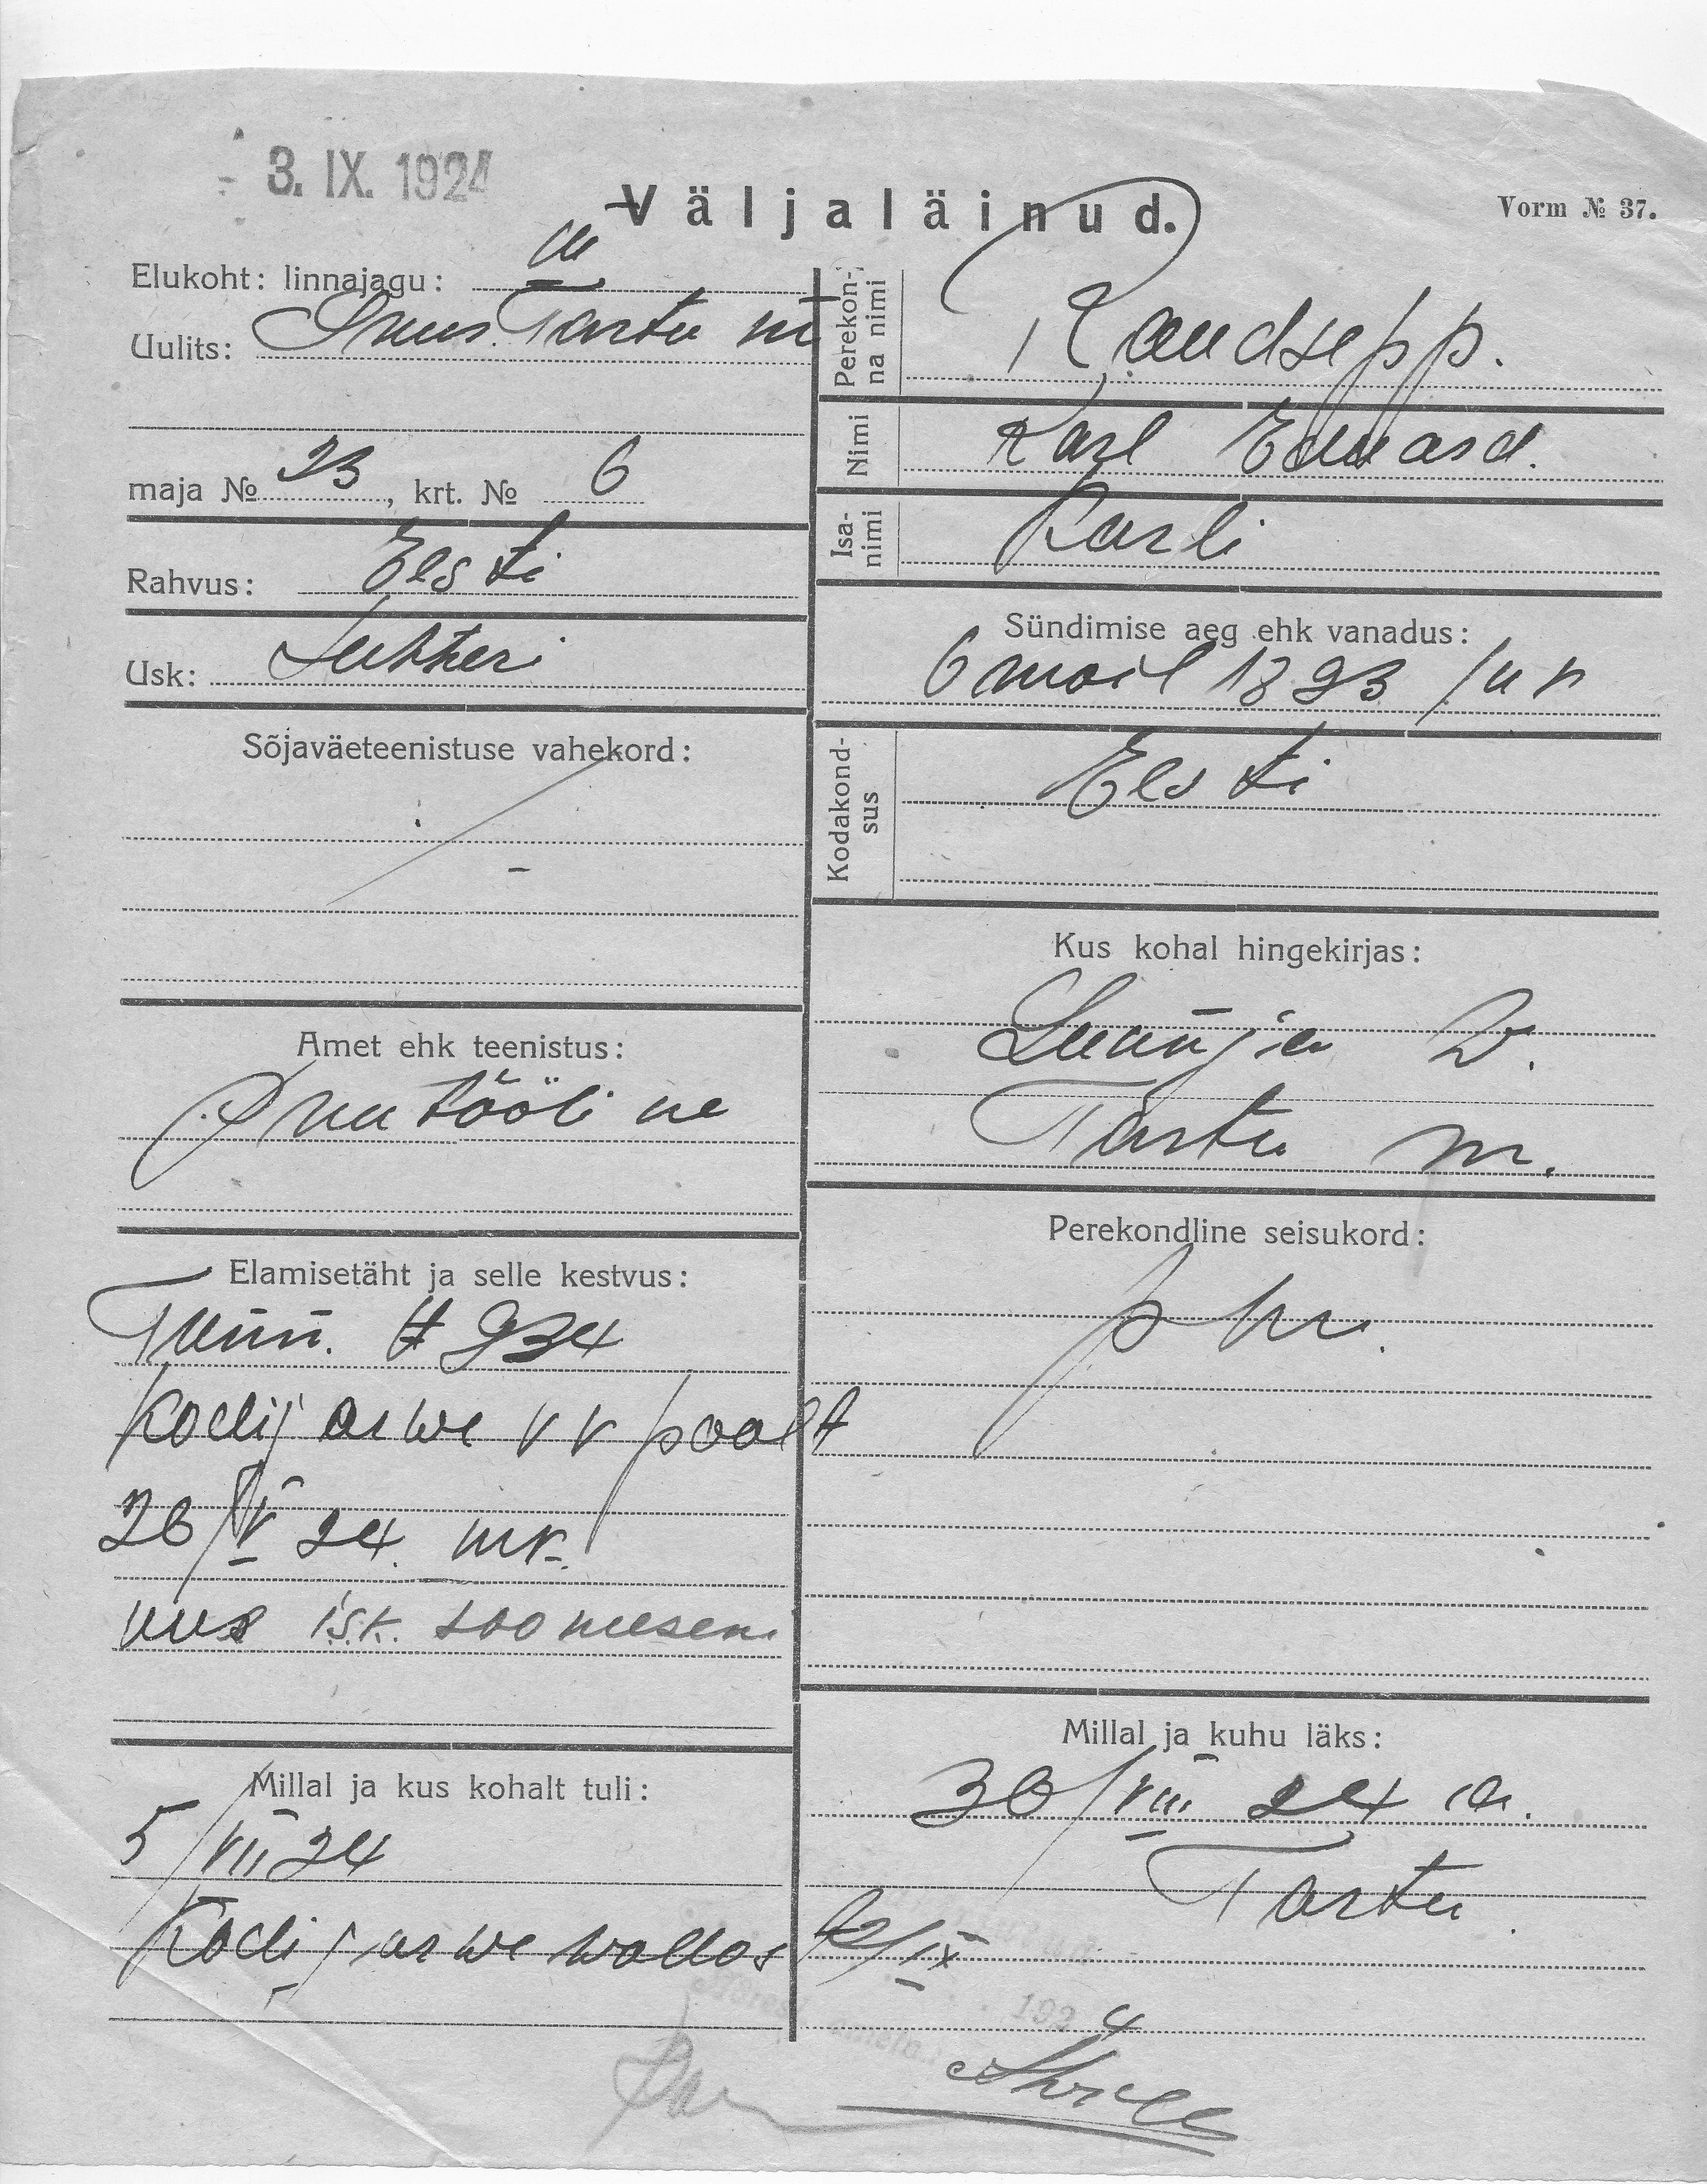 3. IX. 1924
Väljaläinud.
Vorm № 37.
Elukoht: linnajagu: III
Uulits: Suur Tartu m
maja № 23, krt. № 6
Rahvus: Eesti
Usk: Lutheri
Sõjaväeteenistuse vahekord:
Amet ehk teenistus:
Puutööline
Elamisetäht ja selle kestvus:
Tunn. # 934
Kodijarwe v v poolt
26/V 24.
uus is.t.
Millal ja kus kohalt tuli:
5/VII 24
Kodijarwe wallast
Perekonna nimi
Raudsepp.
Nimi
Karl Eduard.
Isanimi
Karli
Sündimise aeg ehk vanadus:
6 mail 1893
Kodakondsus
Eesti
Kus kohal hingekirjas:
Luunja v.
Tartu m.
Perekondline seisukord:
Millal ja kuhu läks:
30/VIII 24 a.
Tartu
2/IX
192 4